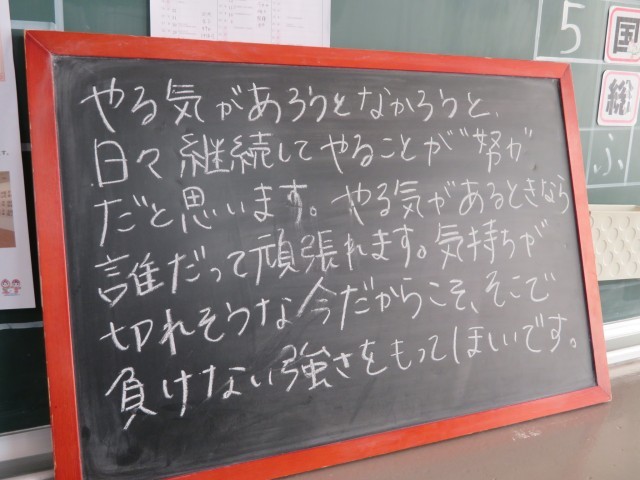 やる気があろうとなかろうと、
日々継続してやることが"努力
だと思います。やる気があるときなら
誰だって頑張れます。気持ちが
切れそうな今だからこそ、そこで
負けない強さをもってほしいです。
5
国
総
ふ